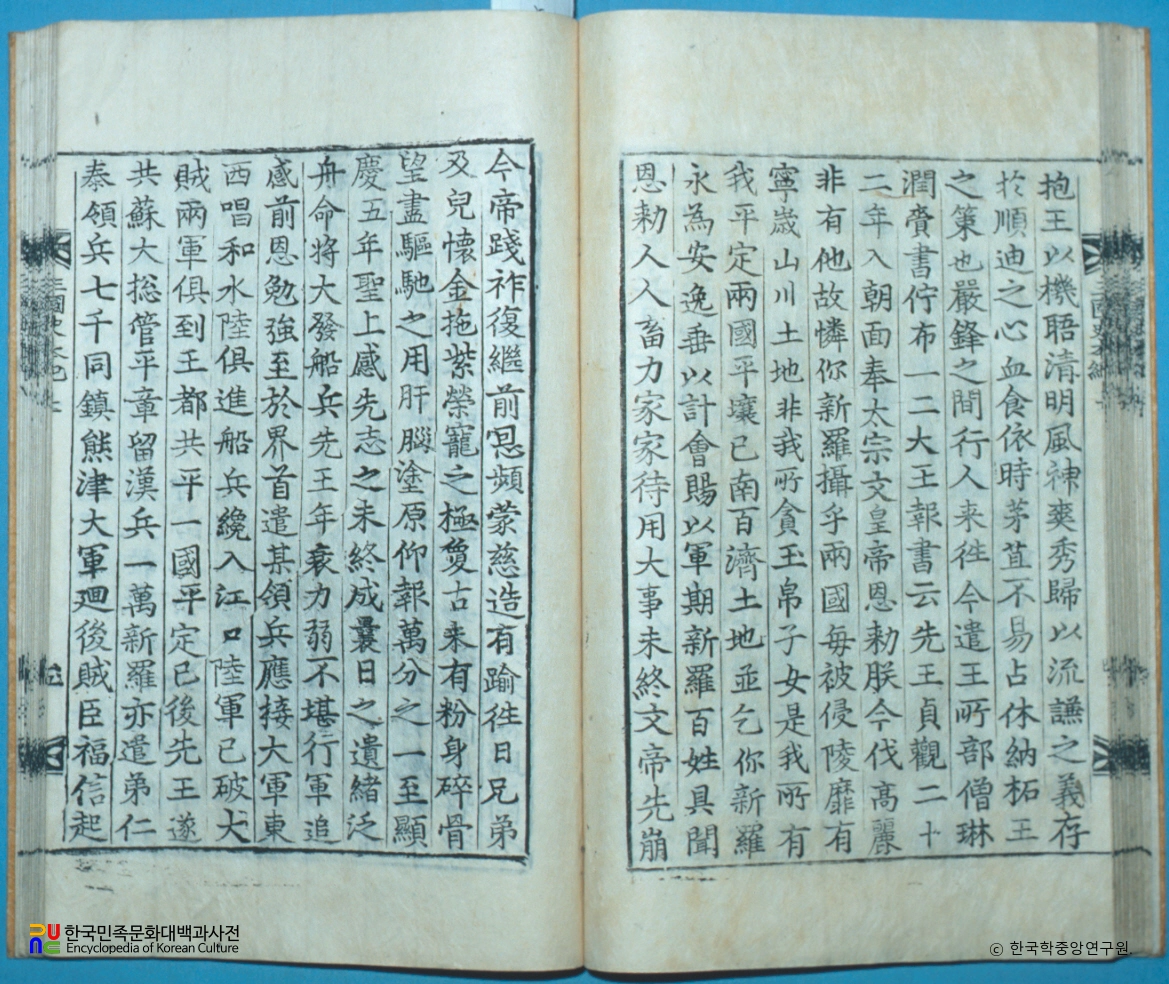 抱王以機晤清明風神爽秀歸以流謙之義存
扵順迪之心血食依時茅苴不易占休納祏王
之策也嚴鋒之間行人来徃今遣王所部僧琳
潤賫書佇布一二大王報書云先王貞觀二十
二年入朝面奉太宗文皇帝恩勑朕今伐髙麗
非有他故憐你新羅攝乎兩國每被侵陵靡有
寧歲山川土地非我所貪玉帛子女是我所有
我平定兩國平壤已南百濟土地並乞你新羅
永為安逸垂以計會賜以軍期新羅百姓具聞
恩勑人人畜力家家待用大事未終文帝先崩
今帝踐祚復繼前恩頻蒙慈造有踰徃日兄弟
及兒懷金拖紫榮寵之極敻古未有粉身碎骨
望盡驅馳之用肝腦塗原仰報萬分之一至顯
慶五年聖上感先志之未終成曩日之遺緒泛
舟命将大發船兵先王年衰力弱不堪行軍追
感前恩勉強至於界首遣某領兵應接大軍東
西唱和水陸俱進船兵纔入江口陸軍已破大
賊兩軍俱到王都共平一國平定已後先王遂
共蘇大揔管平章留漢兵一萬新羅亦遣弟仁
泰領兵七千同鎮熊津大軍廻後賊臣福信起
한국민족문화대백과사전
Encyclopedia of Korean Culture
© 한국학중앙연구원.